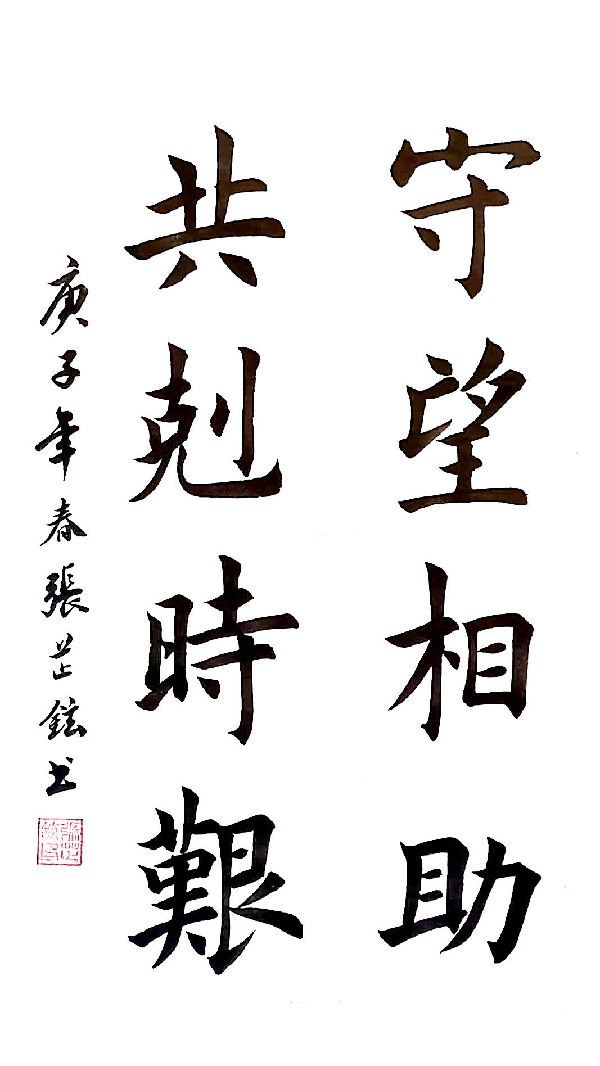 守望相助
共剋時艱
庚子年春張芷鋐书